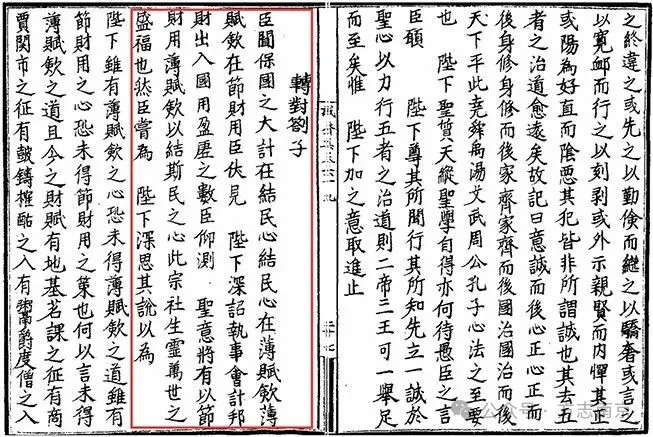 之終違之或先之以勤儉而繼之以驕奢或言之
以寬卹而行之以刻剥或外示親賢而内憚其正
或陽為好直而陰惡其犯皆非所謂誠也其去五
者之治道愈遠矣故記曰意誠而後心正心正而
後身修身修而後家齊家齊而後國治國治而後
天下平此堯舜禹湯文武周公孔子心法之至要
也 陛下聖質天縱聖學自得亦何待愚臣之言
臣願 陛下尊其所聞行其所知先立一誠於
聖心以力行五者之治道則二帝三王可一舉足
而至矣惟 陛下加之意取進止
轉對劄子
臣聞保國之大計在結民心結民心在薄賦歛薄
賦歛在節財用臣伏見 陛下深詔執事會計邦
財出入國用盈虛之數臣仰測 聖意將有以節
財用薄賦歛以結斯民之心此宗社生靈萬世之
盛福也然臣嘗為 陛下深思其說以為
陛下雖有薄賦歛之心恐未得薄賦歛之道雖有
節財用之心恐未得節財用之策也何以言未得
薄賦歛之道且今之財賦有地基茗課之征有商
賈關市之征有鼓鑄榷酤之入有鬻爵度僧之入
公众号·方志南京